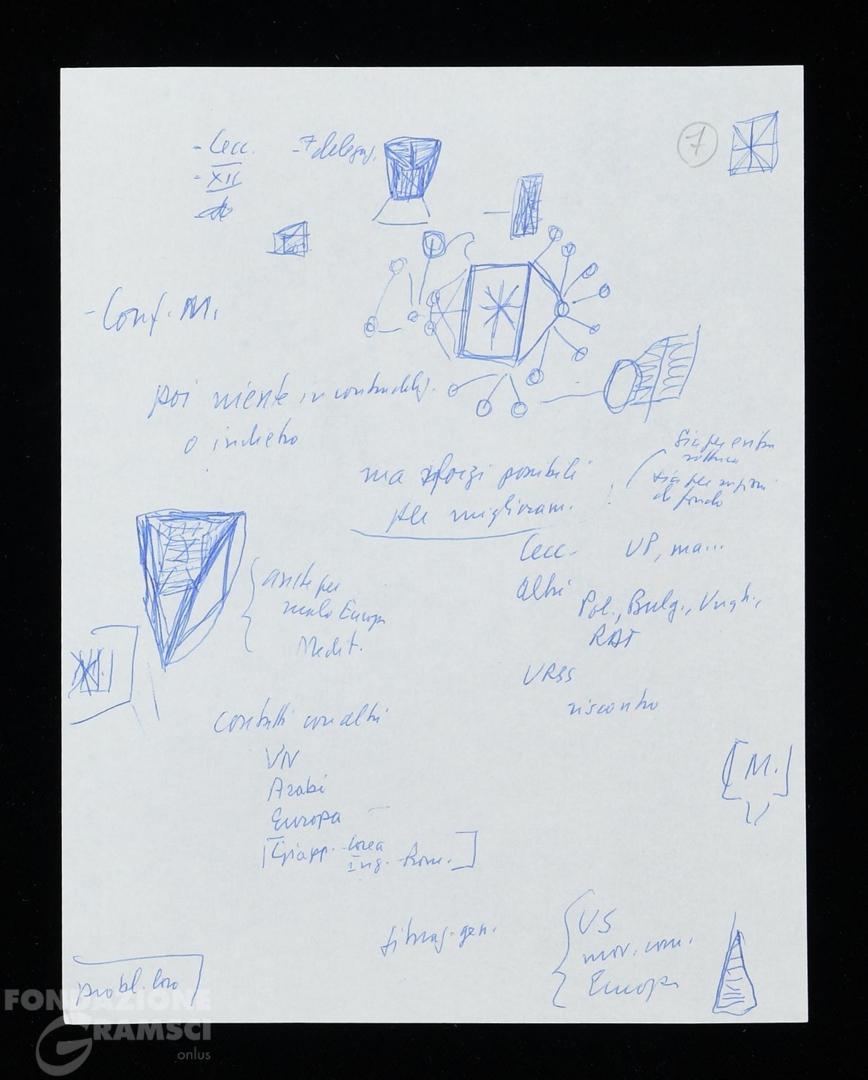 - Cecc. - 7 delegaz.
- XII
7
- Conf. M.
poi niente in contraddiz.
o indietro
ma sforzi possibili
per miglioram.
sia per evitare
rottura
sia per
di fondo
Cecc. UP, ma...
Altri
Pol., Bulg., Ungh.,
RDT
URSS
riscontro
anche per
ruolo Europa
Medit.
contatti con altri
VN
Arabi
Europa
[Giapp. - Corea
Ing. - Rom.]
[M.]
situaz. gen.
US
mov. com.
Europa
probl. loro
FONDAZIONE
GRAMSCI
onlus